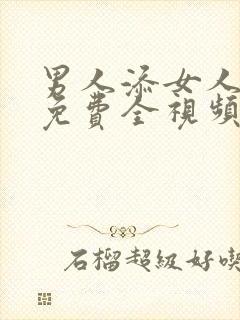 男人添女人
免費全視頻
石榴超級好喫